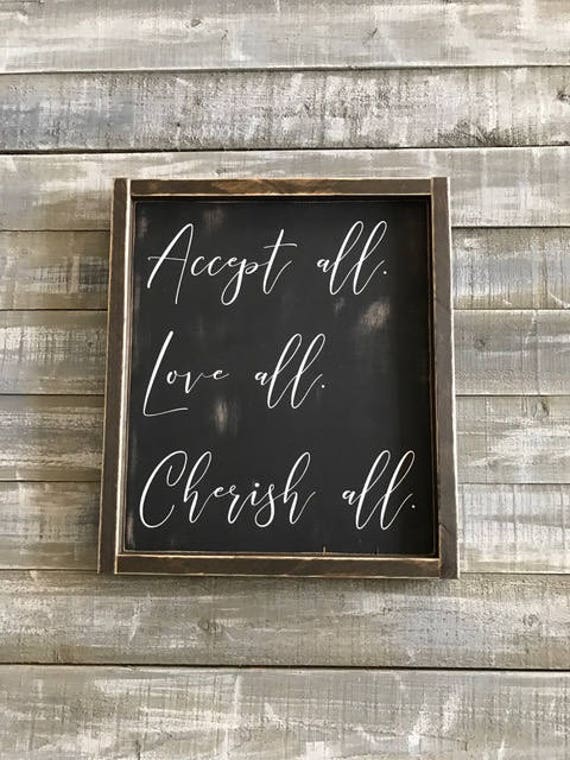 Accept all.
Love all.
Cherish all.